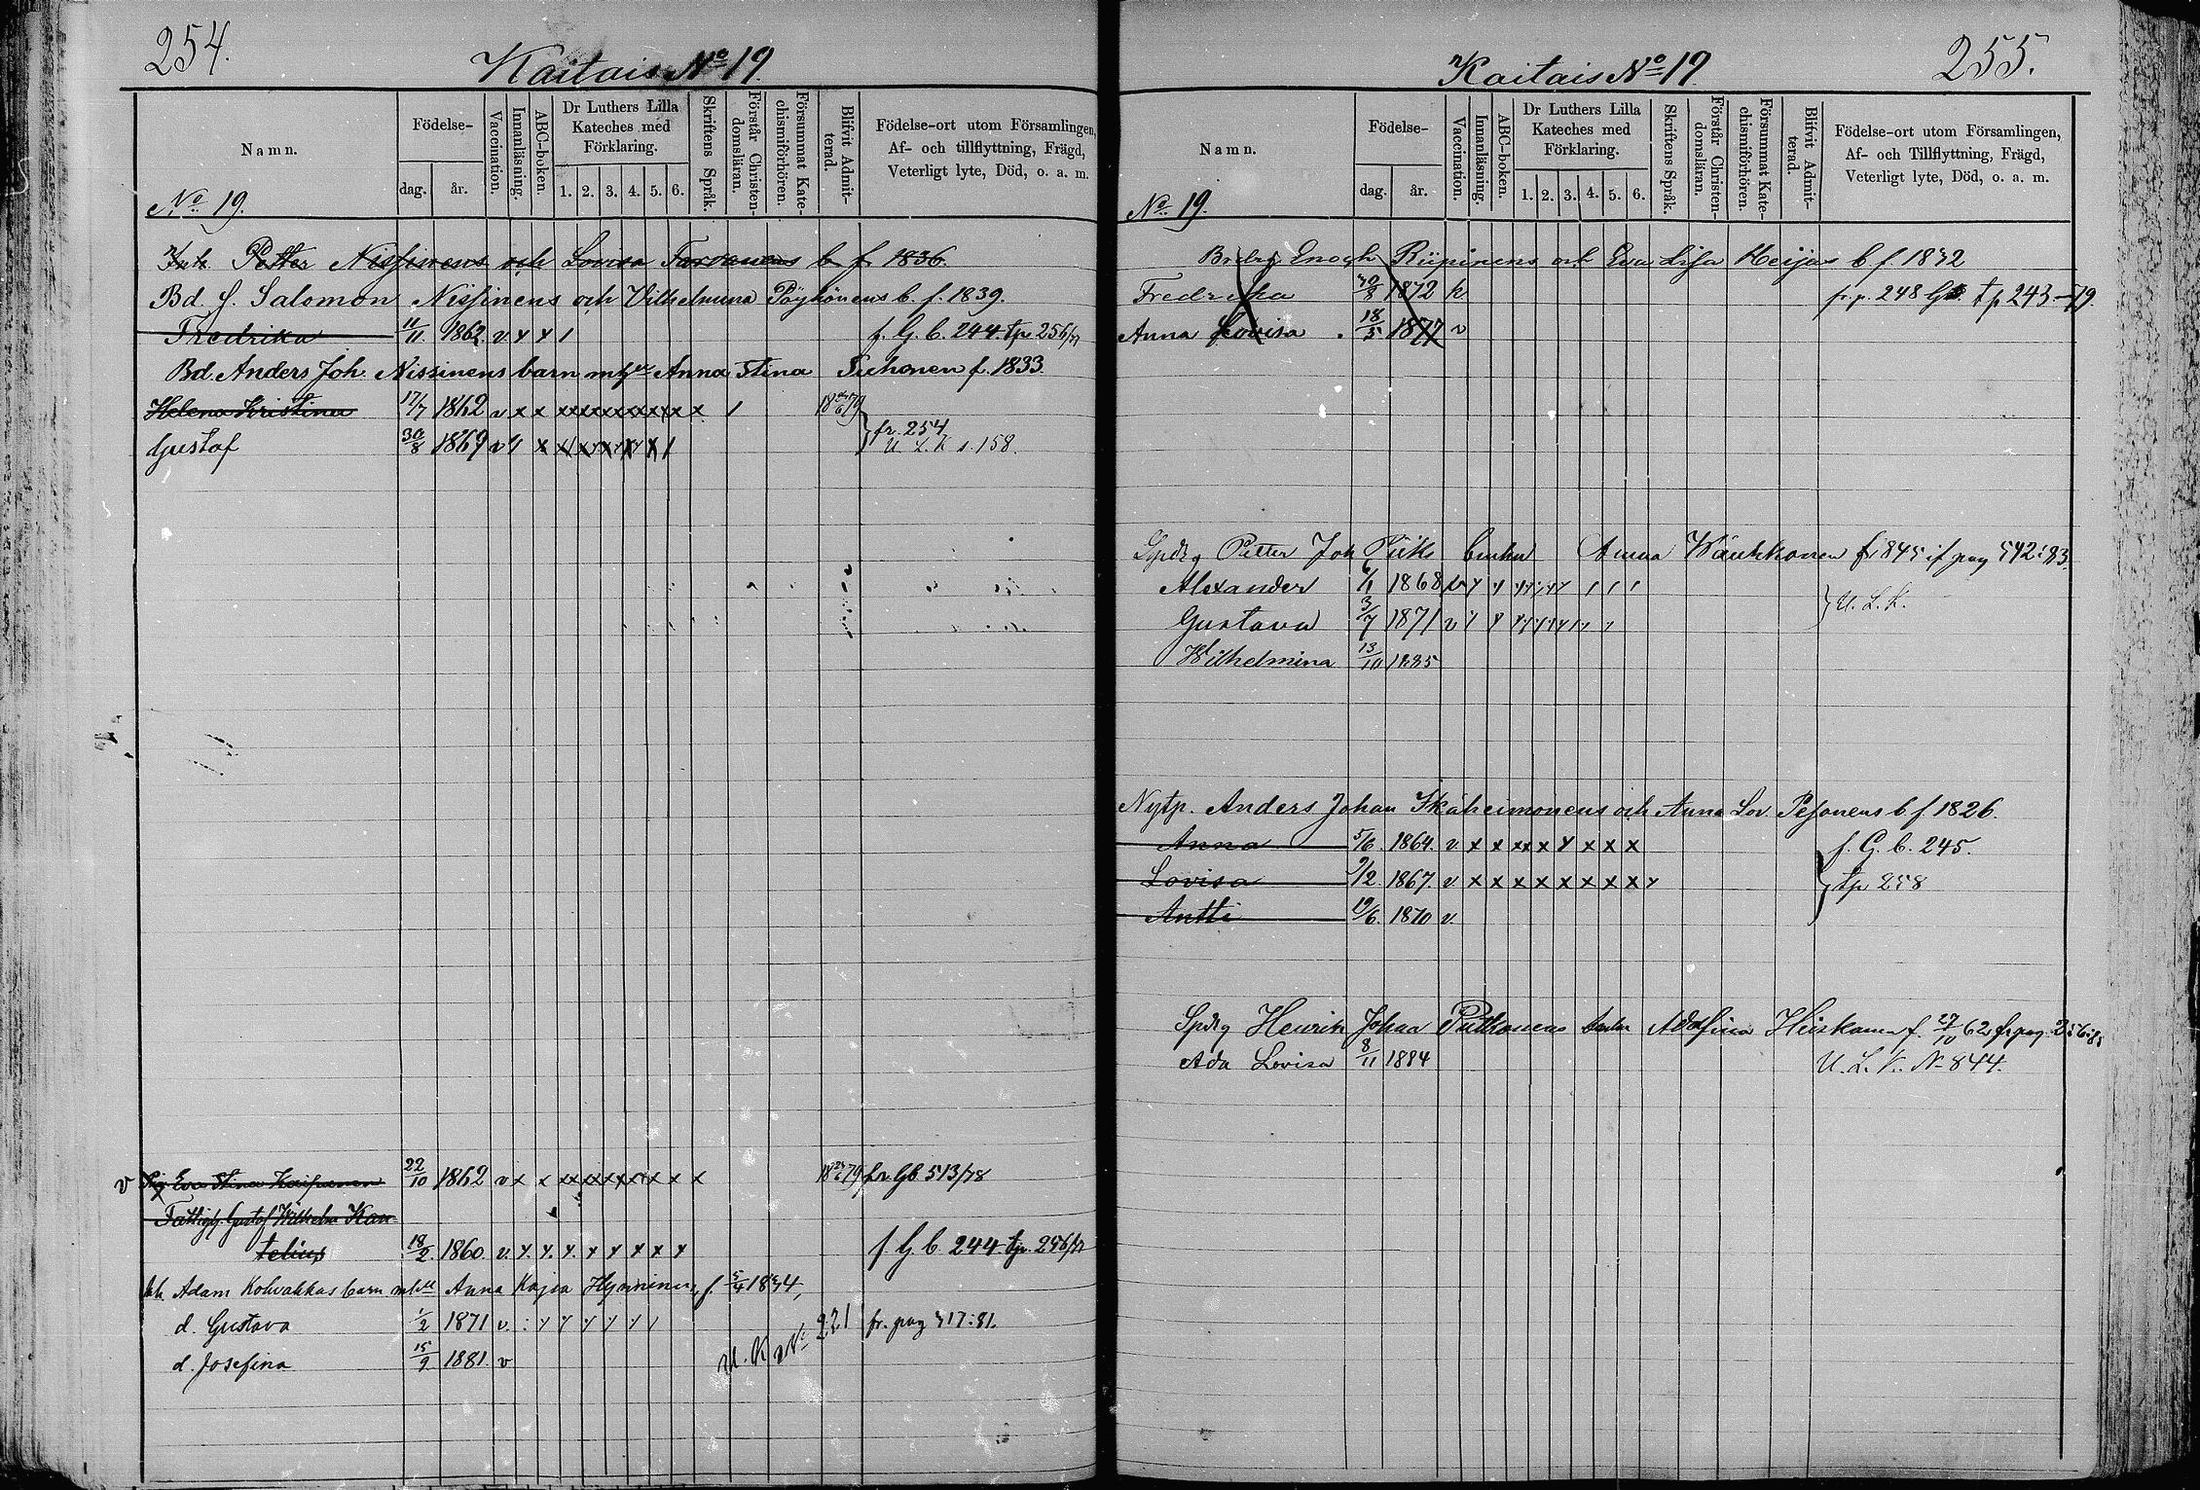 254.
Kaitais No 19.
Namn.
Födelse-
dag.
år.
Vaccination.
Innanläsning.
ABC-boken.
Dr Luthers Lilla
Kateches med
Förklaring.
1. 2. 3. 4. 5. 6.
Skriftens Språk.
Förstår Christen-
domsläran.
Försummat Kate-
chismiförhören.
Blifvit Admit-
terad.
Födelse-ort utom Församlingen,
Af- och tillflyttning, Frägd,
Veterligt lyte, Död, o. a. m.
No 19.
Petter Nissinens och Lovisa b. f. 1836.
Bd. f. Salomon Nissinens och Vilhelmina Pöyhönens b. f. 1839.
Fredrika 11/11 1862. v. x x 1 f. G. b. 244 tp 256/77
Bd. Anders Joh. Nissinens barn m hu Anna Stina Tuhonen f. 1833.
Helena Kristina 17/7 1862 v x x xx xx xx xx x x x 1 18 79
Gustaf 30/8 1869 v fr. 254
U. L. K s. 158.
v Eva Stina 22/10 1862 v x x xx xx xx x x x x 18 79 fr Gb 513/78
Fattigg. Gustaf Wilhelm Kan-
telius 18/2 1860. v. x. x. x. x x x x x f. G. b. 244 tp. 256/77
Adam Kohvakkas barn Anna Kajsa f. 1834,
d. Gustava 1/2 1871 v. fr. pag 317:81.
d. Josefina 15/9 1881. v
U. K No 221
255.
Kaitais No 19
Namn.
Födelse-
dag.
år.
Vaccination.
Innanläsning.
ABC-boken.
Dr Luthers Lilla
Kateches med
Förklaring.
1. 2. 3. 4. 5. 6.
Skriftens Språk.
Förstår Christen-
domsläran.
Försummat Kate-
chismiförhören.
Blifvit Admit-
terad.
Födelse-ort utom Församlingen,
Af- och Tillflyttning, Frägd,
Veterligt lyte, Död, o. a. m.
No 19.
Enoch Riipinens och Eva Lisa Heijas b. f. 1832
Fredrika 1872 k fr. p. 248 Gb. tp 243-79.
Anna Lovisa 18/5 1877 v
Petter Joh Anna f 1845 if pag 542:83
Alexander 1868 v
Gustava 3/7 1871 v } U. L. K.
Wilhelmina 13/10 1885
Nytp. Anders Johan Ikäheimonens och Anna Lov. Pesonens b. f. 1826.
Anna 5/6. 1864. v. x x xx x x x x x f. G. b. 245.
Lovisa 9/2 1867. v. x x x x x x x x x } tp 258
Antti 19/6. 1870 v.
Henrik Johan Putkonens Adolfina Heiskanen f. 27/10 62
Ada Lovisa 8/11 1884 U. L. K. No 844.